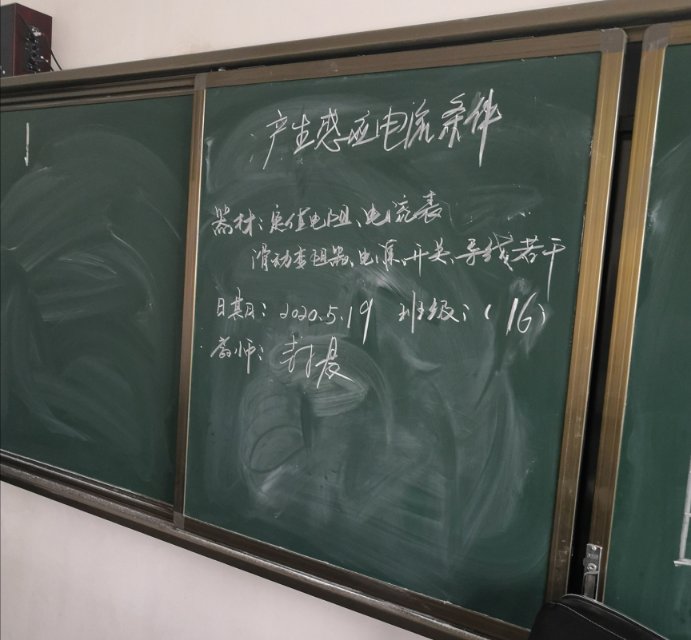 产生感应电流条件
器材：定值电阻、电流表
滑动变阻器、电源、开关、导线若干
日期：2020.5.19 班级：（16）
教师：封晨